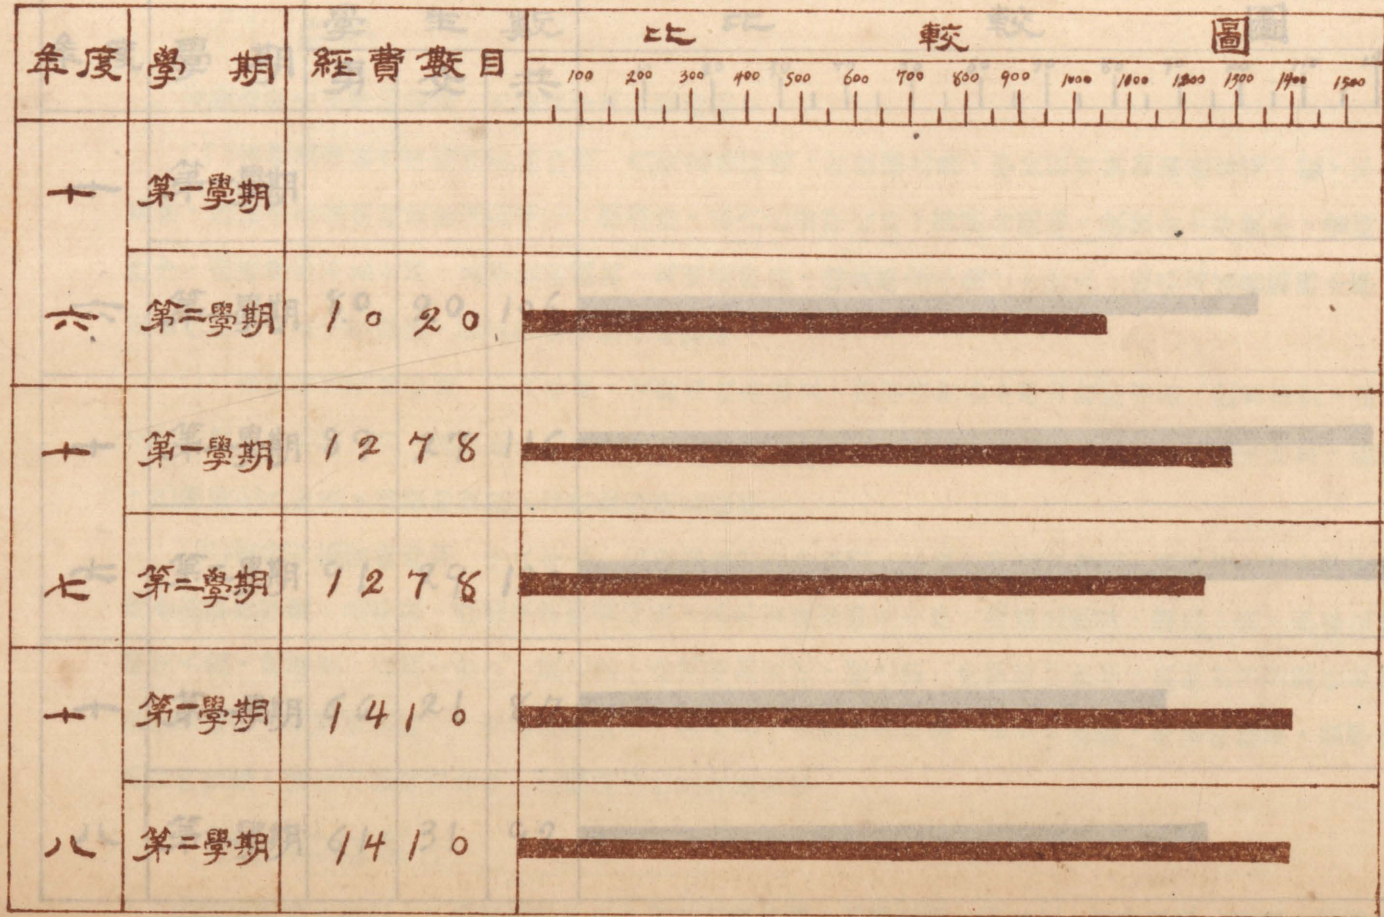 年度 學期 經費數目 比較圖
100 200 300 400 500 600 700 800 900 1000 1000 1200 1300 1400 1500
十 第一學期
六 第二學期 1020
十 第一學期 1278
七 第二學期 1278
十 第一學期 1410
八 第二學期 1410